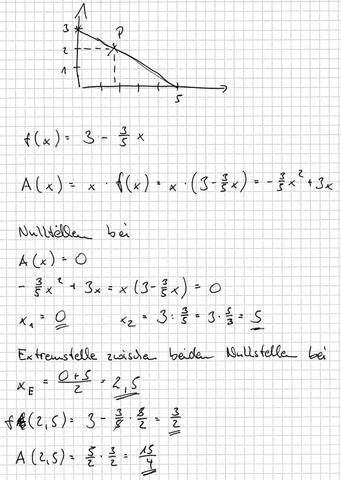 3
P
2
1
5
f(x) = 3 - 3/5 x
A(x) = x · f(x) = x · (3 - 3/5 x) = - 3/5 x² + 3x
Nullstellen bei
A(x) = 0
- 3/5 x² + 3x = x (3 - 3/5 x) = 0
x₁ = 0 x₂ = 3 : 3/5 = 3 · 5/3 = 5
Extremstelle zwischen beiden Nullstellen bei
x_E = (0+5)/2 = 2,5
f(2,5) = 3 - 3/5 · 5/2 = 3/2
A(2,5) = 5/2 · 3/2 = 15/4